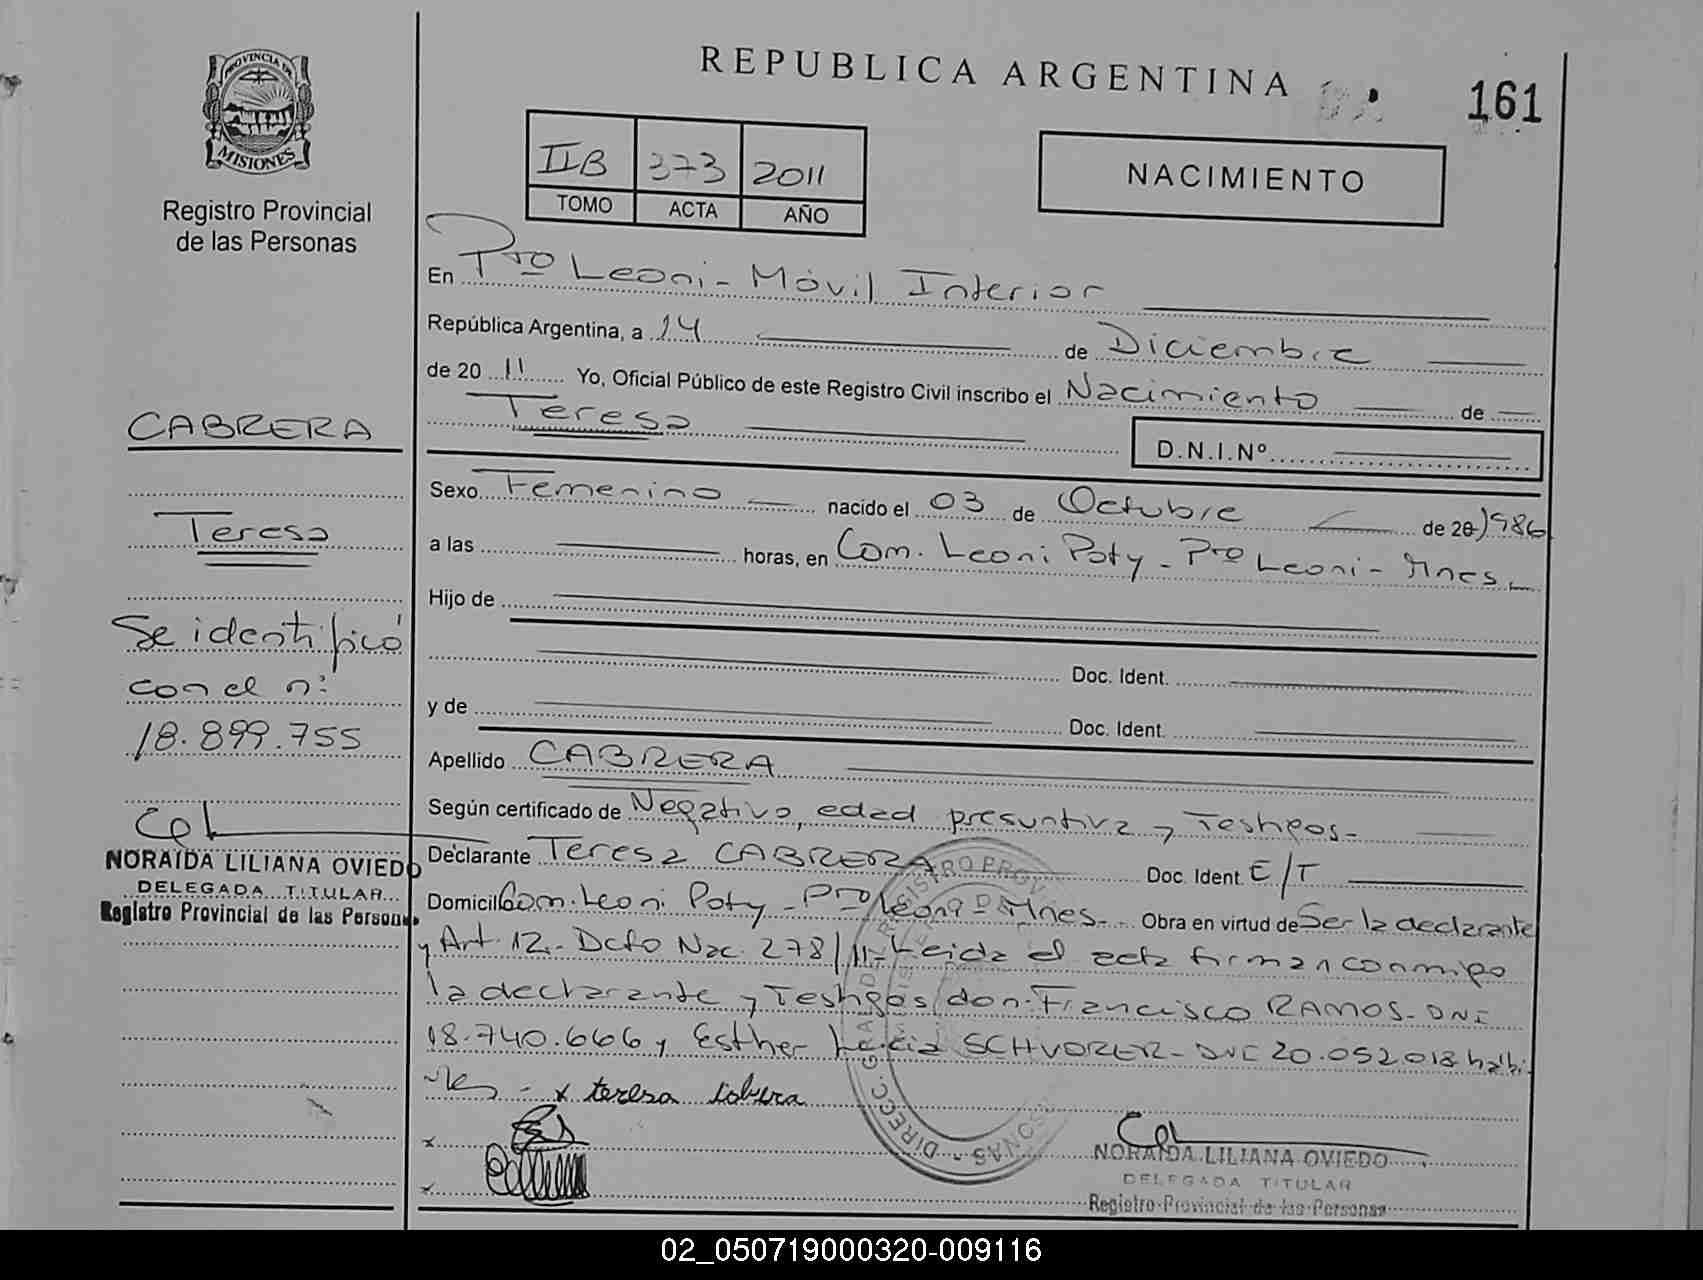 REPUBLICA ARGENTINA
161
PROVINCIA DE
MISIONES
Registro Provincial
de las Personas
IIB 373 2011
TOMO ACTA AÑO
NACIMIENTO
En Pto Leoni - Móvil Interior
República Argentina, a 14 de Diciembre
de 20 11 Yo, Oficial Público de este Registro Civil inscribo el Nacimiento de
Teresa D.N.I.Nº
Sexo Femenino nacido el 03 de Octubre de 20 1986
a las horas, en Com. Leoni Poty - Pto Leoni - Mnes.
Hijo de
Doc. Ident.
y de Doc. Ident.
Apellido CABRERA
Según certificado de Negativo, edad presuntiva y Testigos.
Declarante Teresa CABRERA Doc. Ident. E/T
Domicilio Com. Leoni Poty - Pto Leoni - Mnes. Obra en virtud de Ser la declarante
y Art. 12. Dcto Nac. 278/11 - Leida el acta firman conmigo
la declarante y Testigos don: Francisco RAMOS - DNI
18.740.666 y Esther SCHVORER - DNI 20.052.018 hábi
les - x teresa
x
x
CABRERA
Teresa
Se identificó
con el nº
18.899.755
NORAIDA LILIANA OVIEDO
DELEGADA TITULAR
Registro Provincial de las Personas
NORAIDA LILIANA OVIEDO
DELEGADA TITULAR
Registro Provincial de las Personas
02_050719000320-009116